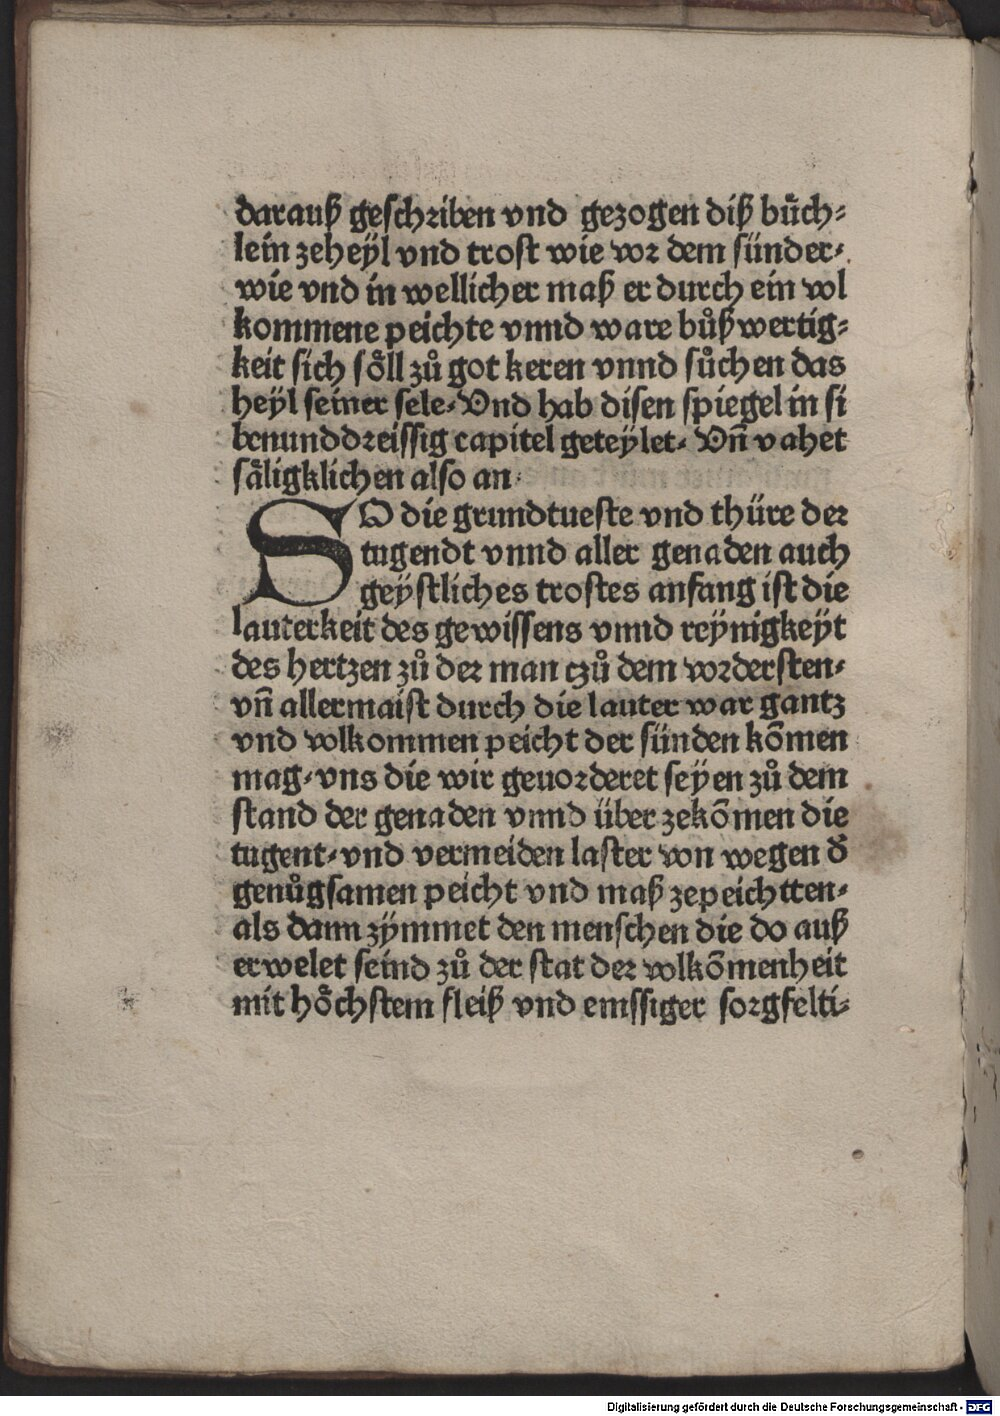 darauß geschriben vnd gezogen diß bůch⸗
lein zeheyl vnd trost wie vor dem sünder⸗
wie vnd in wellicher maß er durch ein vol
kommene peichte vnnd ware bůßwertig⸗
keit sich soͤll zů got keren vnnd sůchen das
heyl seiner sele⸗ Vnd hab disen spiegel in si
benunddreissig capitel geteylet⸗ Vn̄ vahet
saͤligklichen also an⸗
SO die grundtueste vnd thüre der
tugendt vnnd aller genaden auch
geystliches trostes anfang ist die
lauterkeit des gewissens vnnd reynigkeyt
des hertzen zů der man czů dem vordersten⸗
vn̄ allermaist durch die lauter war gantz
vnd volkommen peicht der sünden kōmen
mag⸗ vns die wir geuorderet seyen zů dem
stand der genaden vnnd über zekōmen die
tugent⸗ vnd vermeiden laster von wegen d̄
genůgsamen peicht vnd maß zepeichtten⸗
als dann zymmet den menschen die do auß
erwelet seind zů der stat der volkōmenheit
mit hoͤchstem fleiß vnd emssiger sorgfelti⸗
Digitalisierung gefördert durch die Deutsche Forschungsgemeinschaft - DFG